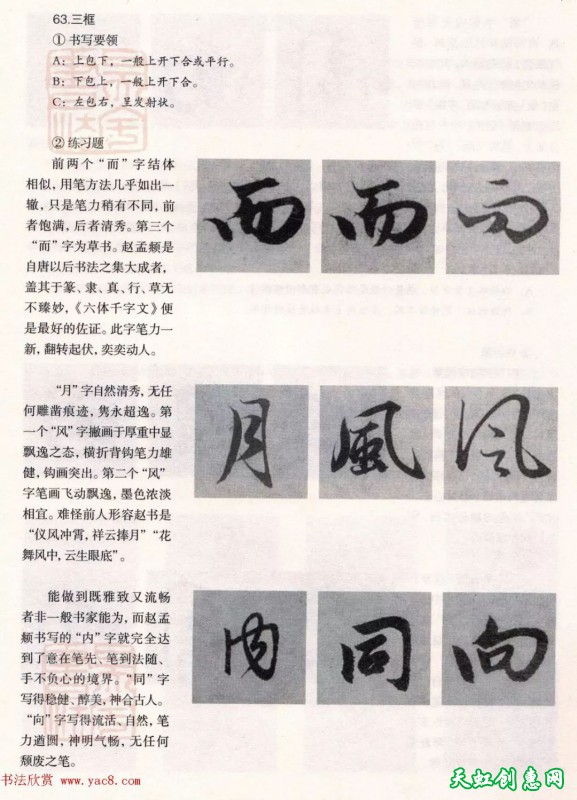 63.三框
①书写要领
A：上包下，一般上开下合或平行。
B：下包上，一般上开下合。
C：左包右，呈发射状。
②练习题
前两个“而”字结体
相似，用笔方法几乎如出一
辙，只是笔力稍有不同，前
者饱满，后者清秀。第三个
“而”字为草书。赵孟頫是
自唐以后书法之集大成者，
盖其于篆、隶、真、行、草无
不臻妙，《六体千字文》便
是最好的佐证。此字笔力一
新，翻转起伏，奕奕动人。
而 而 而
“月”字自然清秀，无任
何雕凿痕迹，隽永超逸。第
一个“风”字撇画于厚重中显
飘逸之态，横折背钩笔力雄
健，钩画突出。第二个“风”
字笔画飞动飘逸，墨色浓淡
相宜。难怪前人形容赵书是
“仪风冲霄，祥云捧月”“花
舞风中，云生眼底”。
月 風 风
能做到既雅致又流畅
者非一般书家能为，而赵孟
頫书写的“内”字就完全达
到了意在笔先、笔到法随、
手不负心的境界。“同”字
写得稳健、醇美，神合古人。
“向”字写得流活、自然，笔
力遒圆，神明气畅，无任何
颓废之笔。
内 同 向
书法欣赏 www.yac8.com
天虹创意网